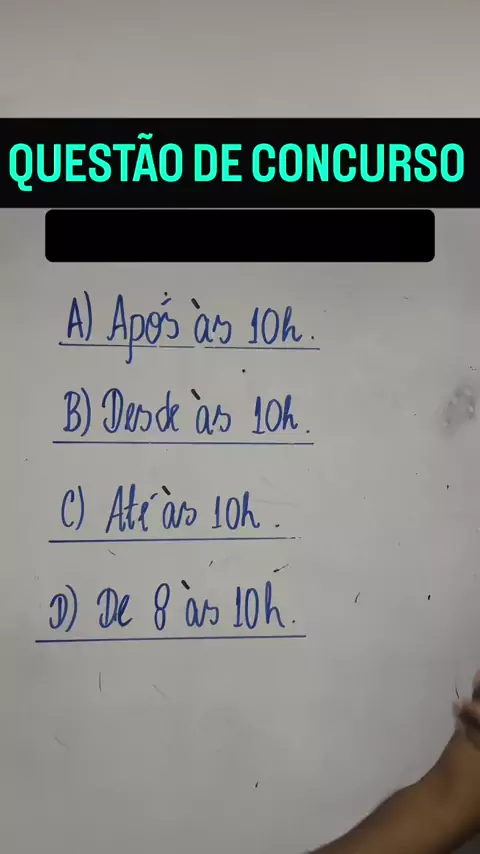 QUESTÃO DE CONCURSO
A) Após às 10h.
B) Desde às 10h.
C) Até às 10h.
D) De 8 às 10h.